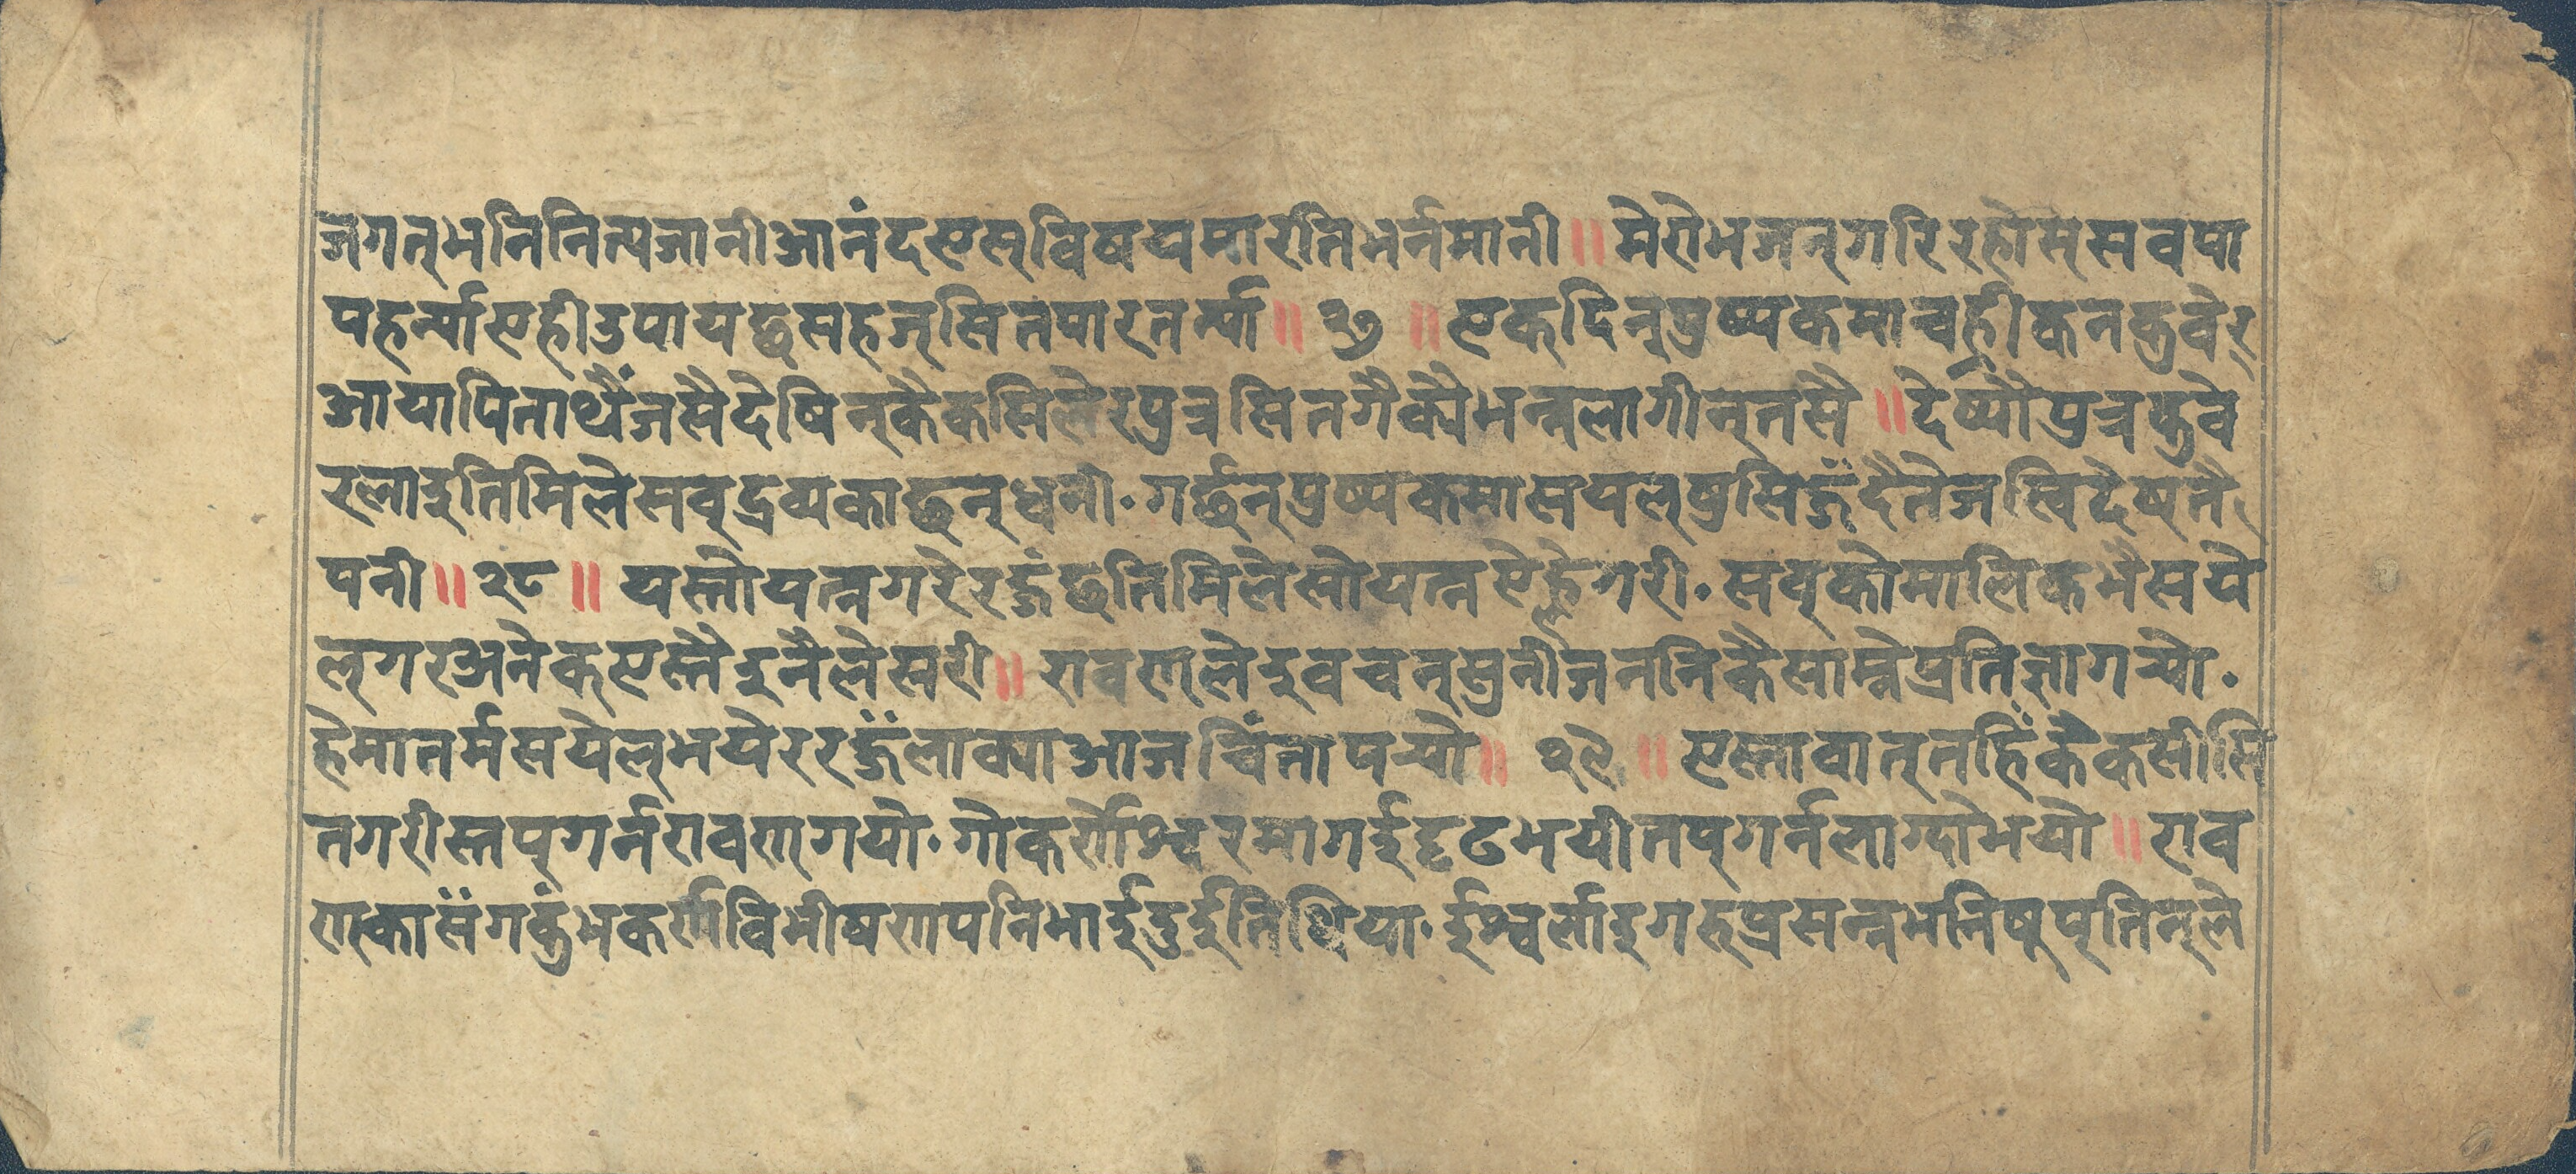 जगत्भनिनित्यजानीआनंदएस्विषयमारतिभर्नमानी॥मेरोभजन्गरिरहोस्सवपा
पहर्न्याएहीउपायछसहज्सितपारतर्न्या॥२७॥एक्दिन्पुष्पकमाचहीकनकुवेर्
आयापिताथैंजसैदेषिन्कैकसिलेरपुत्रसितगैक्यैभन्नलागीन्तसै॥देष्यौपुत्रकुवे
रलाइतिमिलेसव्द्रव्यकाछन्धनी.गर्छन्पुष्पकमासयल्षुसिजँदैतेजस्विदेष्तै
पनी॥२८॥यस्तोयत्नगरेरजँछतिमिलेसोयत्नऐल्हेगरी.सप्कोमालिकभैसये
ल्गरअनेक्एस्तैइनैलेसरी॥रावण्लेइवचन्सुनीजननिकैसाम्नेप्रतिज्ञागर्‍यो.
हेमातर्मसयेल्भयेररजँलाक्याआजचिंतापर्‍यो॥२९॥एस्तावात्तहिंकैकसीसि
तगरीस्तप्गर्नरावण्गयो.गोकर्णेश्वरमागईदृढभयीतप्गर्नलाग्दोभयो॥राव
ण्कासँगकुंभकर्णविभीषणपनिभाईदुईतिथिया.ईश्वर्लाइगरूप्रसन्नभनिषुप्तिन्ले